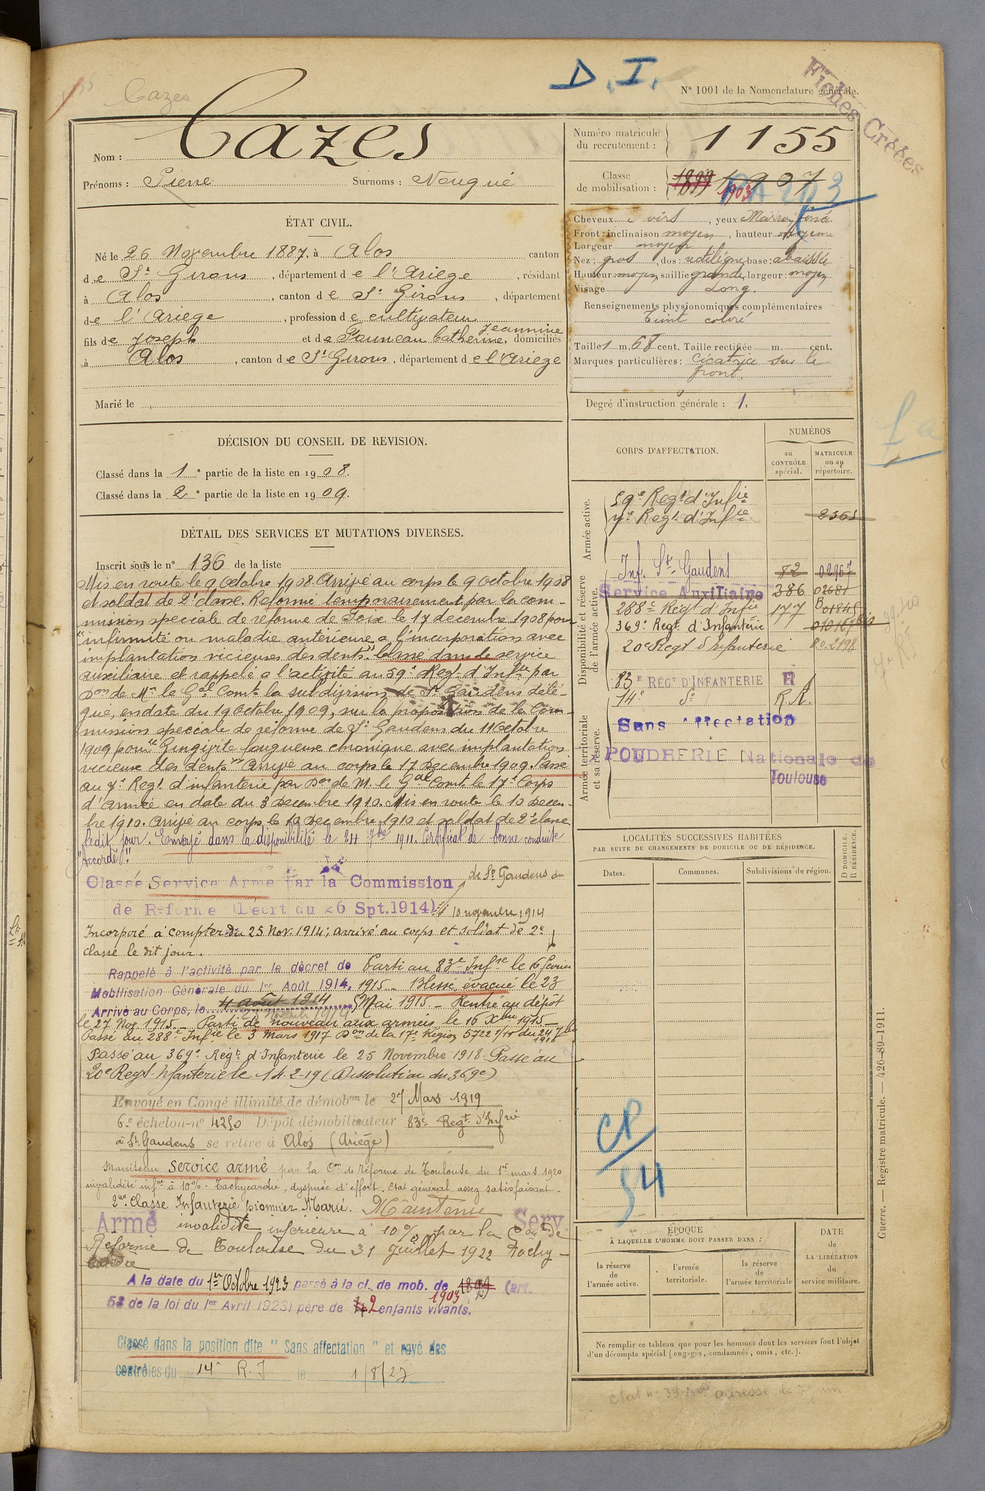 D. I.
N° 1001 de la Nomenclature générale.
Fiches Créées
Cazes
Nom : Cazes
Prénoms : Pierre Surnoms : Nougué
Numéro matricule du recrutement : 1155
Classe de mobilisation : 1899 1903 1907
ÉTAT CIVIL.
Né le 26 Novembre 1887, à Alos canton
de St Girons, département de l'Ariège, résidant
à Alos, canton de St Girons, département
de l'Ariège, profession de cultivateur
fils de Joseph et de Fauneau Catherine, Jeannine domiciliés
à Alos, canton de St Girons, département de l'Ariège
Marié le
Cheveux noirs, yeux Marron foncé
Front : inclinaison moyen, hauteur moyenne
Largeur moyen
Nez : gros, dos : rectiligne, base : abaissée
Hauteur moyen saillie grande, largeur : moyen
Visage Long
Renseignements physionomiques complémentaires
Teint coloré
Taille 1 m. 68 cent. Taille rectifiée m. cent.
Marques particulières : Cicatrice sur le
front.
Degré d'instruction générale : 1.
DÉCISION DU CONSEIL DE REVISION.
Classé dans la 1e partie de la liste en 1908.
Classé dans la 2e partie de la liste en 1909.
DÉTAIL DES SERVICES ET MUTATIONS DIVERSES.
Inscrit sous le n° 136 de la liste
Mis en route le 9 octobre 1908. Arrivé au corps le 9 octobre 1908
et soldat de 2e classe. Réformé temporairement par la com-
mission spéciale de réforme de Foix le 17 décembre 1908 pour
"infirmité ou maladie antérieure à l'incorporation avec
implantation vicieuses des dents". Classé dans le service
auxiliaire et rappelé à l'activité au 59e Régt d'Inf.ie par
Don de Mr le Gal Comt la subdivision de St Gaudens délé-
gué, en date du 19 Octobre 1909, sur la proposition de la Com-
mission spéciale de réforme de St Gaudens du 11 octobre
1909 pour "Gingivite fongueuse chronique avec implantation
vicieuse des dents" Arrivé au corps le 17 décembre 1909. Passé
au 7e Régt d'infanterie par Don de M. le Gal Comt le 17e Corps
d'armée en date du 3 décembre 1910. Mis en route le 10 décem-
bre 1910. Arrivé au corps le 10 décembre 1910 et soldat de 2e classe
ledit jour. Envoyé dans la disponibilité le 24 7bre 1911. Certificat de bonne conduite
"Accordé".
Classé Service Armé par la Commission de St Gaudens du
de Réforme (Décrt du 26 Spt. 1914) 10 novembre 1914
Incorporé à compter du 25 Nov. 1914; arrivé au corps et soldat de 2e
classe le dit jour.
Rappelé à l'activité par le décret de Parti au 83e Infie le 16 février
Mobilisation Générale du 1er Août 1914, 1915 - Blessé, évacué le 23
Arrivé au Corps, le 4 août 1914 Mai 1915 - Rentré au dépôt
le 27 Nov. 1915 - Parti de nouveau aux armées le 16 Xbre 1915 -
Passé au 288e Infie le 3 mars 1917 Don de la 17e Région 5722 du 24
Passé au 369e Régt d'Infanterie le 25 Novembre 1918. Passé au
20e Régt Infanterie le 14-2-19 (Dissolution du 369e)
Envoyé en Congé illimité de démobon le 27 Mars 1919
6e échelon-n° 4250 Dépôt démobilisateur 83e Régt d'Infie
à St Gaudens se retire à Alos (Ariège)
Maintenu Service armé par la Con de Réforme de Toulouse du 1er mars 1920
invalidité infre à 10%. Tachycardie, dyspnée d'effort, état général assez satisfaisant.
2me Classe Infanterie Pionnier Marié. Maintenu
Armé Serv.
invalidité inférieure à 10% par la Con de
Réforme de Toulouse du 31 Juillet 1922 Tachy-
cardie
A la date du 1er Octobre 1923 passé à la cl. de mob. de 1899 1903 (art.
58 de la loi du 1er Avril 1923) père de 2 enfants vivants.
Classé dans la position dite "Sans affectation" et rayé des
contrôles du 14e R.I le 1/8/27
CORPS D'AFFECTATION.
NUMÉROS
au CONTRÔLE spécial.
MATRICULE ou au répertoire.
Armée active.
59e Régt d'Infie
7e Régt d'Infie 2565
Disponibilité et réserve de l'armée active.
Inf. St Gaudens 82
Service Auxiliaire 386
288e Régt d'Infie 177
369e Régt d'Infanterie
20e Régt d'Infanterie
Armée territoriale et sa réserve.
83E RÉGT D'INFANTERIE R
14e do R.A.
Sans Affectation
POUDRERIE Nationale de
Toulouse
LOCALITÉS SUCCESSIVES HABITÉES
PAR SUITE DE CHANGEMENTS DE DOMICILE OU DE RÉSIDENCE.
Dates. Communes. Subdivisions de région. D DOMICILE. R RÉSIDENCE.
CP
54
ÉPOQUE
À LAQUELLE L'HOMME DOIT PASSER DANS :
la réserve de l'armée active.
l'armée territoriale.
la réserve de l'armée territoriale
DATE de LA LIBÉRATION du service militaire.
Ne remplir ce tableau que pour les hommes dont les services font l'objet
d'un décompte spécial (engagés, condamnés, omis, etc.).
Guerre. — Registre matricule. — 426-89-1911.